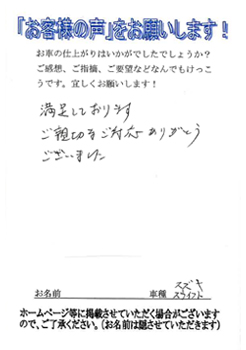 「お客様の声」をお願いします！
お車の仕上がりはいかがでしたでしょうか？
ご感想、ご指摘、ご要望などなんでもけっこ
うです。宜しくお願いします！
満足しております
ご親切なご対応ありがとう
ございました
スズキ
お名前 車種 スイフト
ホームページ等に掲載させていただく場合がございます
ので、ご了承ください。（お名前は隠させていただきます）